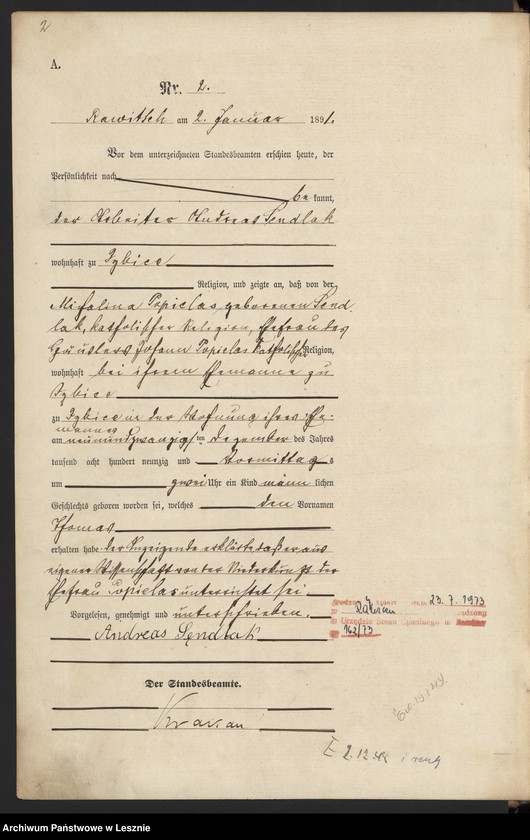 2
A.
Nr. 2.
Rawitsch am 2. Januar 1891.
Vor dem unterzeichneten Standesbeamten erschien heute, der
Persönlichkeit nach
bekannt,
der Arbeiter Andreas Sendlak
wohnhaft zu Izbice
Religion, und zeigte an, daß von der
Michalina Popielas geborenen Send
lak, katholischer Religion, Ehefrau des
Johann Popielas katholischer Religion,
wohnhaft bei ihrem Ehemanne zu
Izbice
zu Izbice in der Wohnung ihres Ehe-
mannes
am neunundzwanzig ten Dezember des Jahres
tausend acht hundert neunzig und Vormittag s
um zwei Uhr ein Kind männ lichen
Geschlechts geboren worden sei, welches den Vornamen
Thomas
erhalten habe der Anzeigende erklärte, daß er aus
eigener Wissenschaft von der Niederkunft der
Ehefrau Popielas unterrichtet sei.
Vorgelesen, genehmigt und unterschrieben.
Andreas Sendlak
23. 7. 1973
162/73
Der Standesbeamte.
E 2.12
Archiwum Państwowe w Lesznie